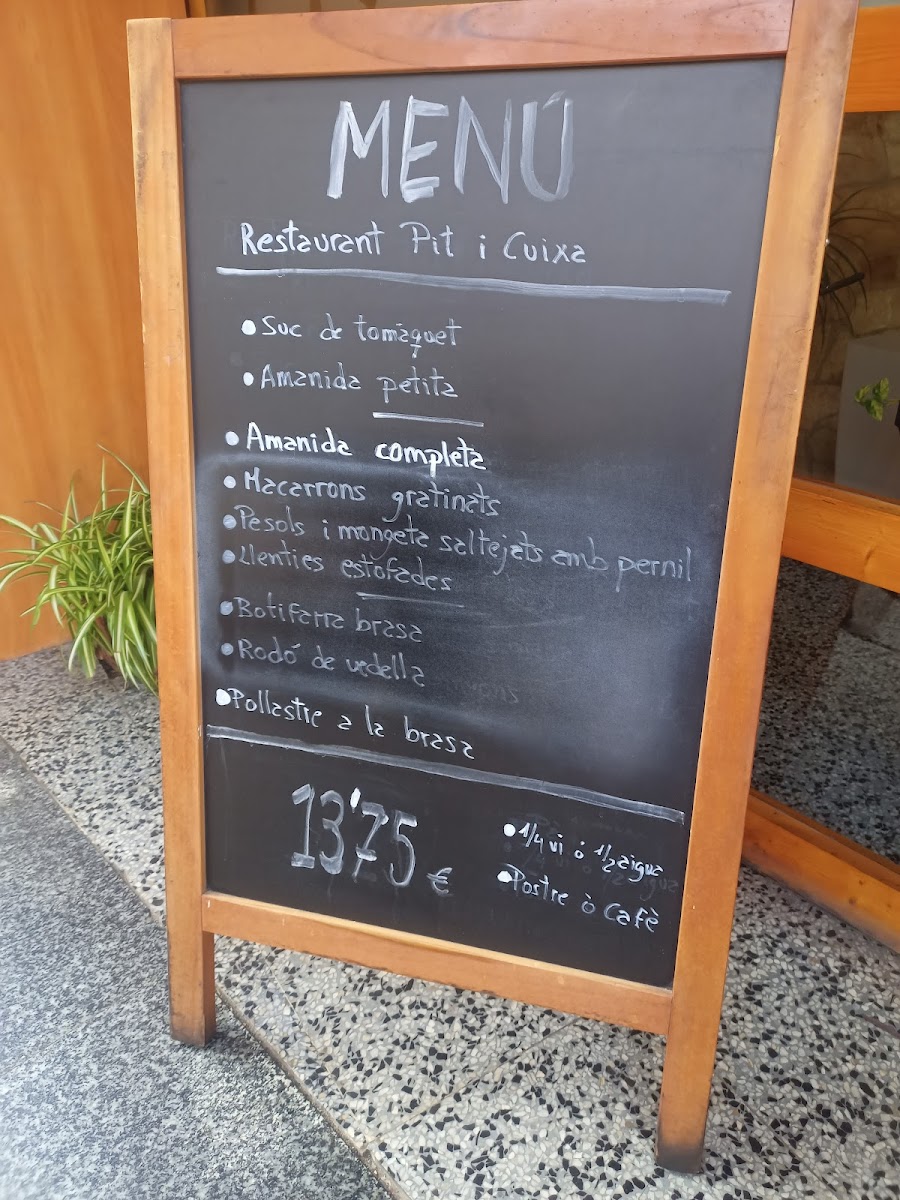 MENÚ
Restaurant Pit i Cuixa
• Suc de tomàquet
• Amanida petita
• Amanida completa
• Macarrons gratinats
• Pesols i mongeta saltejats amb pernil
• Llenties estofades
• Botifarra brasa
• Rodó de vedella
• Pollastre a la brasa
13'75 €
• 1/4 vi ó 1/2 aigua
• Postre ò Cafè